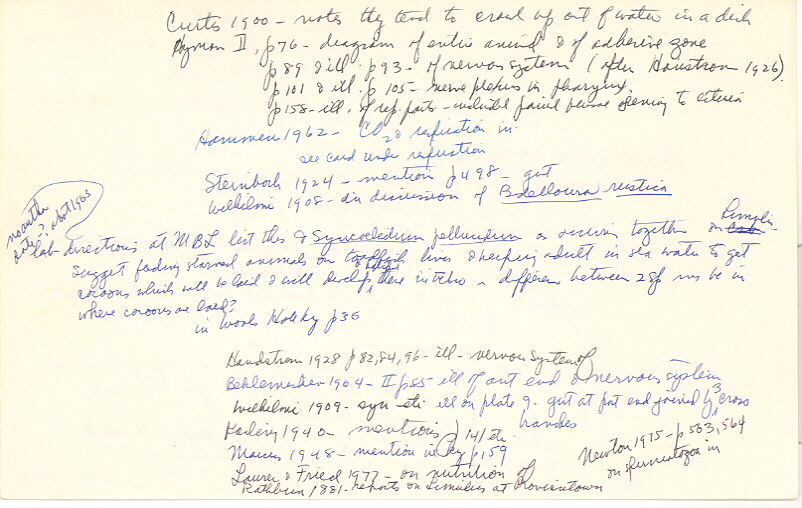 Curtis 1900 - notes they tend to crawl up out of water in a dish
Hyman II, p76 - diagram of entire animal & of adhesive zone
p 89 & ill - p 93 - of nervous system (after Hanstrom 1926)
p 101 & ill. p 105 - nerve plexus in pharynx
p 158 - ill. of rep. parts - opening to exterior
Hammen 1962 - CO2 & respiration in
see card under respiration
Steinbock 1924 - mention p 498 - gut
Wilhelmi 1908 - in discussion of Bdelloura rustica
no author
date? about 1903
lab directions at MBL list this & Syncoelidium pellucidum as occurring together on
Suggest feeding starved animals on livers & keeping adult in sea water to get
cocoons which will be laid & will develop there - difference between 2 sp may be in
where cocoons are laid?
in Woods Hole p 36
Handstrom 1928 p 82, 84, 96 - ill - nervous system of
Beklemishev 1964 - II p 85 - ill of ant end & nervous system
Wilhelmi 1909 - syn etc ill on plate 9 - gut at post end joined by 3 cross
branches
1940 - mentions p 14/ etc
Marcus 1948 - mention in key p 159
Newton 1975 - p 563, 564
on spermatozoa in
Lauer & Fried 1977 - on nutrition of
Rathbun 1881 - reports on Limulus at Provincetown